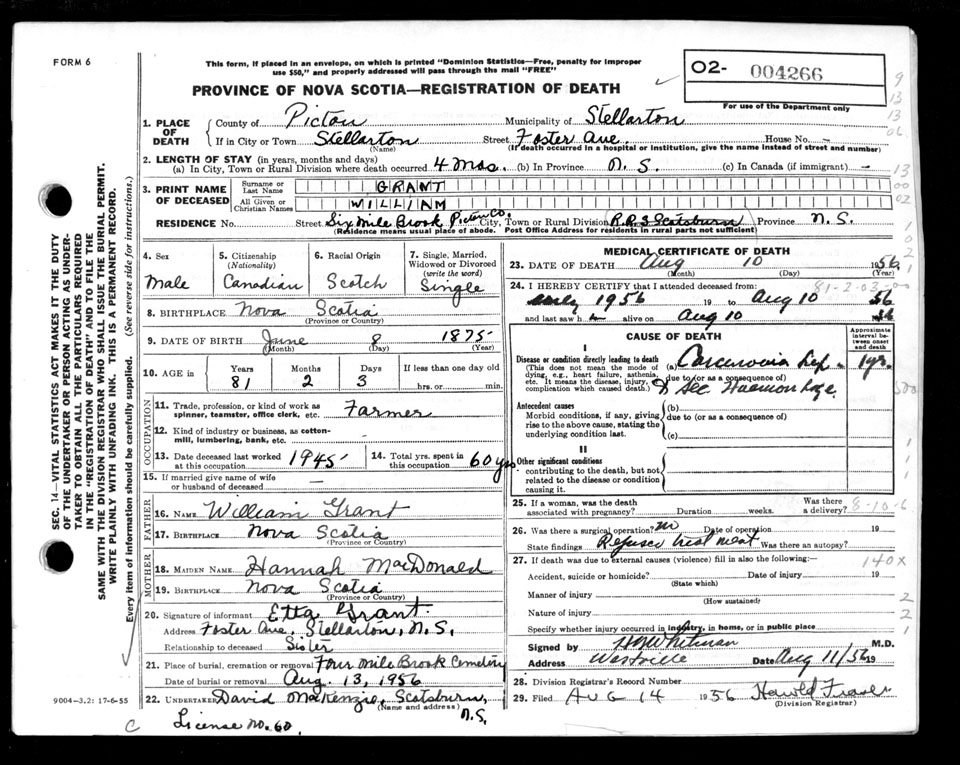 FORM 6
This form, if placed in an envelope, on which is printed "Dominion Statistics—Free, penalty for improper
use $50," and properly addressed will pass through the mail "FREE"
O2- 004266
For use of the Department only
PROVINCE OF NOVA SCOTIA—REGISTRATION OF DEATH
1. PLACE OF DEATH
County of Pictou Municipality of Stellarton
If in City or Town Stellarton Street Foster Ave House No. -
(Name) (If death occurred in a hospital or institution, give the name instead of street and number)
2. LENGTH OF STAY (in years, months and days)
(a) In City, Town or Rural Division where death occurred 4 Mos. (b) In Province N. S. (c) In Canada (if immigrant) -
3. PRINT NAME OF DECEASED
Surname or Last Name GRANT
All Given or Christian Names WILLIAM
RESIDENCE No. Street Six Mile Brook Pictou Co. City, Town or Rural Division R.R.3 Scotsburn Province N. S.
(Residence means usual place of abode. Post Office Address for residents in rural parts not sufficient)
4. Sex
Male
5. Citizenship
(Nationality)
Canadian
6. Racial Origin
Scotch
7. Single, Married, Widowed or Divorced
(write the word)
Single
8. BIRTHPLACE Nova Scotia
(Province or Country)
9. DATE OF BIRTH June 8 1875
(Month) (Day) (Year)
10. AGE in Years Months Days If less than one day old
81 2 3 hrs. or min.
OCCUPATION
11. Trade, profession, or kind of work as
spinner, teamster, office clerk, etc. Farmer
12. Kind of industry or business, as cotton-
mill, lumbering, bank, etc. -
13. Date deceased last worked at this occupation 1945
14. Total yrs. spent in this occupation 60 yrs
15. If married give name of wife
or husband of deceased -
FATHER
16. NAME William Grant
17. BIRTHPLACE Nova Scotia
(Province or Country)
MOTHER
18. MAIDEN NAME Hannah MacDonald
19. BIRTHPLACE Nova Scotia
(Province or Country)
20. Signature of informant Etta Grant.
Address Foster Ave, Stellarton, N. S.
Relationship to deceased Sister
21. Place of burial, cremation or removal Four Mile Brook Cemetery
Date of burial or removal Aug. 13, 1956
22. UNDERTAKER David MacKenzie, Scotsburn,
(Name and address) N. S.
License No. 60
MEDICAL CERTIFICATE OF DEATH
23. DATE OF DEATH Aug 10 1956
(Month) (Day) (Year)
24. I HEREBY CERTIFY that I attended deceased from: 81-2-03-00
early 1956 19 to Aug 10 56
and last saw h alive on Aug 10 56
CAUSE OF DEATH
Approximate interval between onset and death
I
Disease or condition directly leading to death
(This does not mean the mode of dying, e.g., heart failure, asthenia, etc. It means the disease, injury, or complication which caused death.)
(a) Carcinoma Lip. 1 yr.
due to (or as a consequence of)
& Sec Haemorrhage.
Antecedent causes
Morbid conditions, if any, giving rise to the above cause, stating the underlying condition last.
(b)
due to (or as a consequence of)
(c)
II
Other significant conditions
contributing to the death, but not related to the disease or condition causing it.
25. If a woman, was the death associated with pregnancy? Duration weeks. Was there a delivery? 8-10-6
26. Was there a surgical operation? no Date of operation 19
State findings Refused treatment Was there an autopsy?
27. If death was due to external causes (violence) fill in also the following:— 140X
Accident, suicide or homicide? Date of injury 19
(State which)
Manner of injury 2
(How sustained)
Nature of injury 2
Specify whether injury occurred in industry, in home, or in public place 1
Signed by Whitman M.D.
Address Westville Date Aug 11/56 19
28. Division Registrar's Record Number
29. Filed AUG 14 1956 Harold Fraser
(Division Registrar)
SEC. 14—VITAL STATISTICS ACT MAKES IT THE DUTY
OF THE UNDERTAKER OR PERSON ACTING AS UNDER-
TAKER TO OBTAIN ALL THE PARTICULARS REQUIRED
IN THE "REGISTRATION OF DEATH" AND TO FILE THE
SAME WITH THE DIVISION REGISTRAR WHO SHALL ISSUE THE BURIAL PERMIT.
WRITE PLAINLY WITH UNFADING INK. THIS IS A PERMANENT RECORD.
Every item of information should be carefully supplied. (See reverse side for instructions.)
9004-3.2: 17-6-55
C
9
13
13
06
13
00
02
1
0
2
1
500
1
1
1